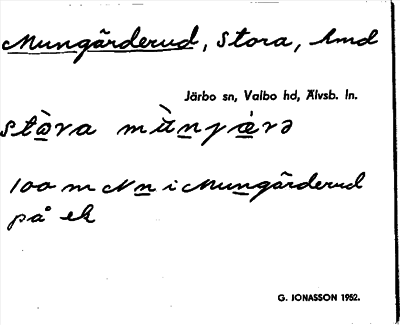 Mungärderud, Stora, lmd
Järbo sn, Valbo hd, Älvsb. ln.
stòra mùnjárə
100 m N n i Mungärderud
på ek
G. JONASSON 1952.